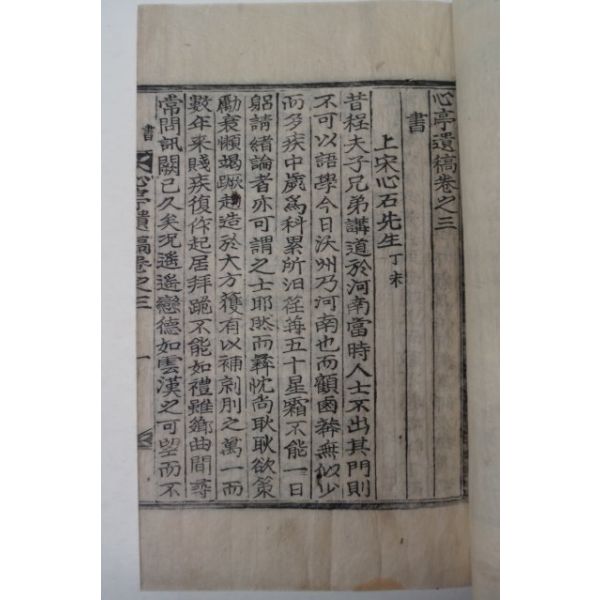 心亭遺稿卷之三
書
上宋心石先生 丁未
昔程夫子兄弟講道於河南當時人士不出其門則
不可以語學今日沃州乃河南也而顧鹵莽無似少
而多疾中歲爲科累所汨荏苒五十星霜不能一日
躬請緖論者亦可謂之士耶然而彛忱尙耿耿欲策
勵衰懶竭蹶趍造於大方獲有以補劓刖之萬一而
數年來賤疾復作起居拜跪不能如禮雖鄕曲間尋
常問訊闕已久矣况遙遙戀德如雲漢之可望而不
書 心亭遺稿卷之三 一